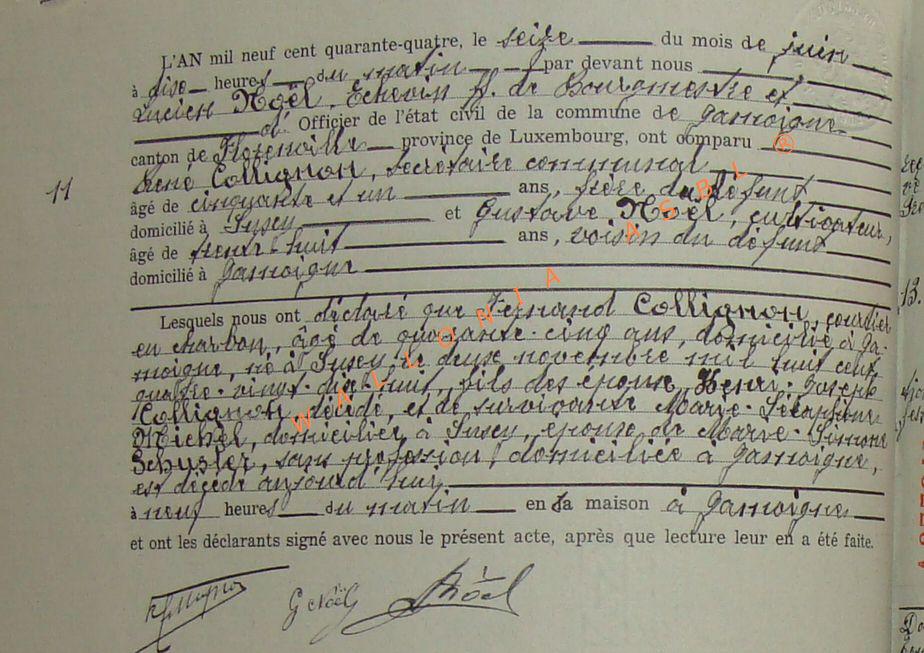 L'AN mil neuf cent quarante-quatre, le seize du mois de juin
à dix heures du matin par devant nous
Lucien Noël, Echevin ff. de Bourgmestre et
d' Officier de l'état civil de la commune de Jamoigne
canton de Florenville province de Luxembourg, ont comparu
11
René Collignon, secrétaire communal
âgé de cinquante et un ans, frère du défunt
domicilié à Izel et Gustave Noël, cultivateur,
âgé de trente-huit ans, voisin du défunt
domicilié à Jamoigne
Lesquels nous ont déclaré que Fernand Collignon, courtier
en charbon, âgé de quarante-cinq ans, domicilié à Ja-
moigne, né à le douze novembre mil huit cent
quatre-vingt-dix-huit, fils des époux Henri-Joseph
Collignon décédé, et de survivante Marie-
Michel, domiciliée à époux de Marie-Simone
Schusler, sans profession, domiciliée à Jamoigne,
est décédé aujourd'hui
à neuf heures du matin en sa maison à Jamoigne
et ont les déclarants signé avec nous le présent acte, après que lecture leur en a été faite.
G Noël Noël
WALLONIA ASBL ®
13.